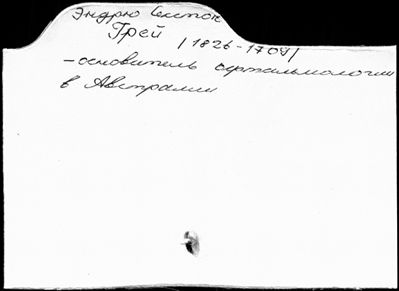 Эндрю Секстон
Грей
/1826-1709/
-основатель офтальмологии
в Австралии